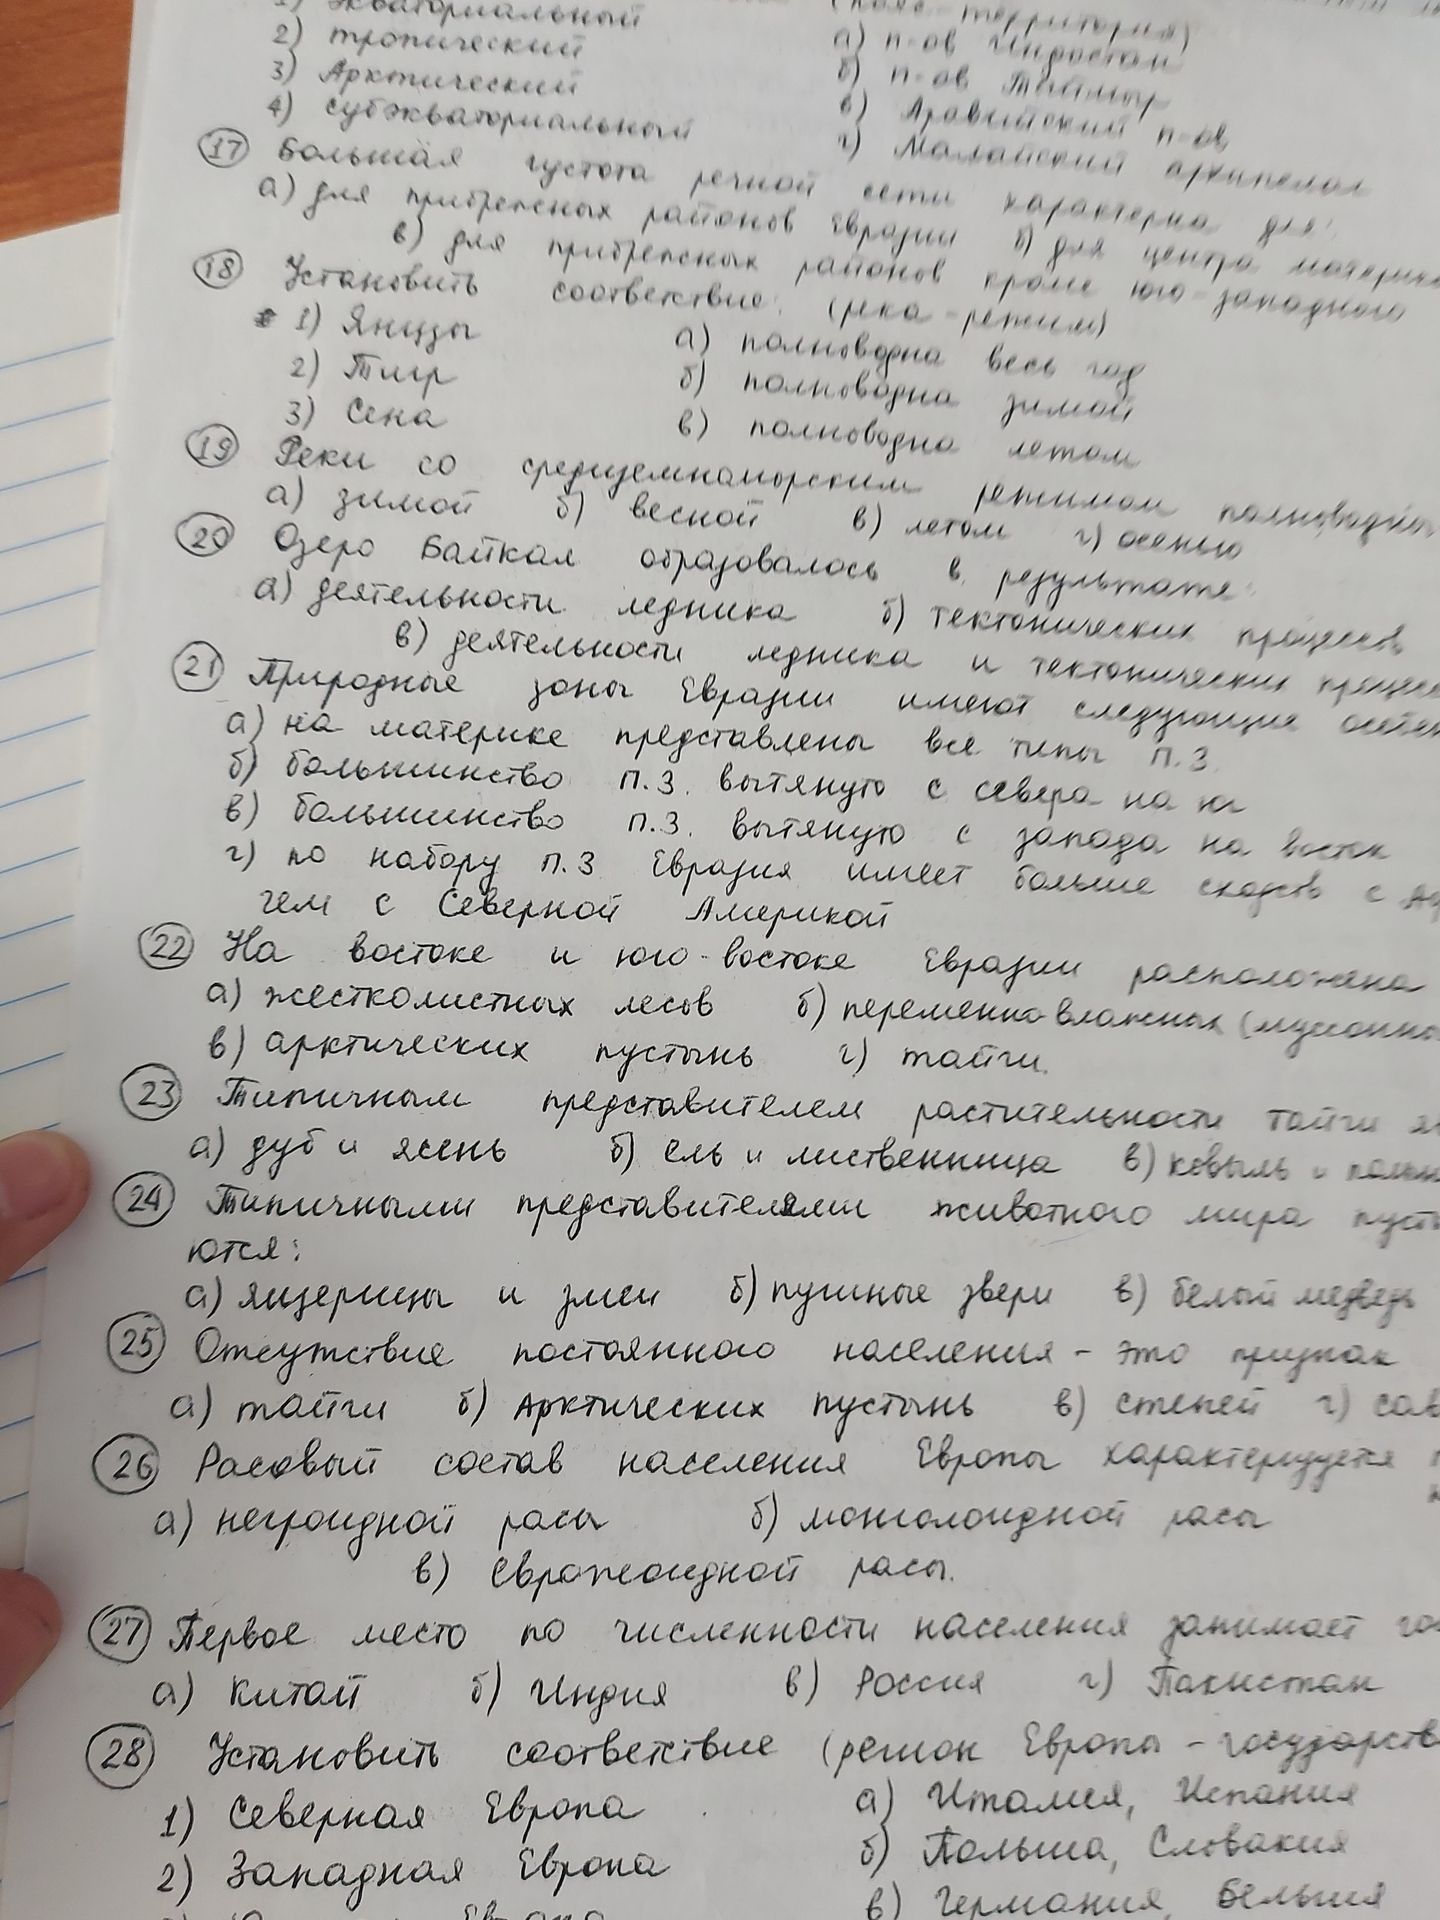 1) Экваториальный (пояс-территория)
2) тропический а) п-ов Индостан
3) Арктический б) п-ов Таймыр
4) субэкваториальный в) Аравийский п-ов
г) Малайский архипелаг
17 Большая густота речной сети характерна для:
а) для прибрежных районов Евразии б) для центра материка
в) для прибрежных районов кроме юго-западного
18 Установить соответствие: (река-режим)
1) Янцзы а) полноводна весь год
2) Тигр б) полноводна зимой
3) Сена в) полноводна летом
19 Реки со средиземноморским режимом полноводны
а) зимой б) весной в) летом г) осенью
20 Озеро Байкал образовалось в результате:
а) деятельности ледника б) тектонических процессов
в) деятельности ледника и тектонических процесс
21 Природные зоны Евразии имеют следующие особен
а) на материке представлены все типы п.з.
б) большинство п.з. вытянуто с севера на юг
в) большинство п.з. вытянуто с запада на восток
г) по набору п.з Евразия имеет больше сходств с
чем с Северной Америкой
22 На востоке и юго-востоке Евразии расположена
а) жестколистных лесов б) переменно влажных (муссонны
в) арктических пустынь г) тайги.
23 Типичным представителем растительности тайги яв
а) дуб и ясень б) ель и лиственница в) ковыль и полын
24 Типичными представителями животного мира пусты
ются:
а) ящерицы и змеи б) пушные звери в) белый медведь
25 Отсутствие постоянного населения - это признак
а) тайги б) Арктических пустынь в) степей г) сав
26 Расовый состав населения Европы характеризуется п
а) негроидной расы б) монголоидной расы
в) Европеоидной расы.
27 Первое место по численности населения занимает гос
а) Китай б) Индия в) Россия г) Пакистан
28 Установить соответствие (регион Европы - государств
1) Северная Европа а) Италия, Испания
2) Западная Европа б) Польша, Словакия
Европа в) Германия, Бельгия